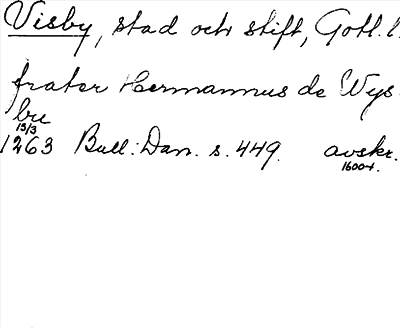 Visby, stad och stift, Gotl. l.
frater Hermannus de Wys
bu
13/3
1263 Bull. Dan. s. 449. avskr.
1600t.